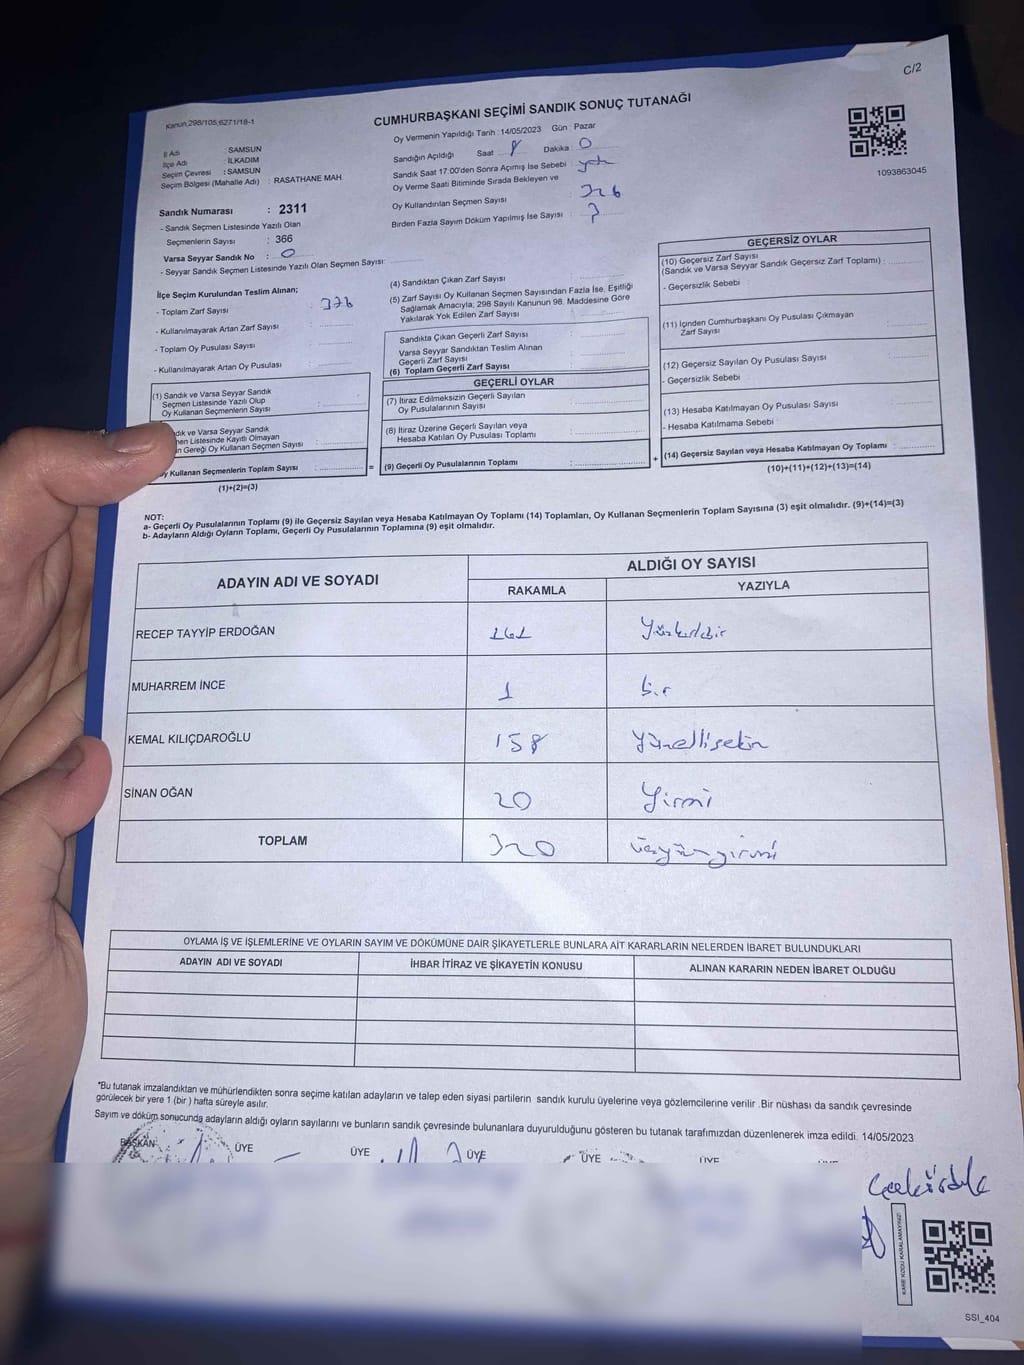 C/2
Kanun:298/105;6271/18-1
CUMHURBAŞKANI SEÇİMİ SANDIK SONUÇ TUTANAĞI
Oy Vermenin Yapıldığı Tarih : 14/05/2023 Gün : Pazar
İl Adı : SAMSUN
İlçe Adı : İLKADIM
Seçim Çevresi : SAMSUN
Seçim Bölgesi (Mahalle Adı) : RASATHANE MAH.
Sandığın Açıldığı Saat : 8 Dakika : 0
Sandık Saat 17:00'den Sonra Açımış İse Sebebi : yok
Oy Verme Saati Bitiminde Sırada Bekleyen ve
Oy Kullandırılan Seçmen Sayısı : 326
Birden Fazla Sayım Döküm Yapılmış İse Sayısı :
1093863045
Sandık Numarası : 2311
- Sandık Seçmen Listesinde Yazılı Olan
Seçmenlerin Sayısı : 366
Varsa Seyyar Sandık No : 0
- Seyyar Sandık Seçmen Listesinde Yazılı Olan Seçmen Sayısı:
İlçe Seçim Kurulundan Teslim Alınan;
- Toplam Zarf Sayısı : 376
- Kullanılmayarak Artan Zarf Sayısı :
- Toplam Oy Pusulası Sayısı :
- Kullanılmayarak Artan Oy Pusulası :
(1) Sandık ve Varsa Seyyar Sandık
Seçmen Listesinde Yazılı Olup
Oy Kullanan Seçmenlerin Sayısı :
ve Varsa Seyyar Sandık
Listesinde Kayıtlı Olmayan
Gereği Oy Kullanan Seçmen Sayısı :
Kullanan Seçmenlerin Toplam Sayısı :
(1)+(2)=(3)
(4) Sandıktan Çıkan Zarf Sayısı :
(5) Zarf Sayısı Oy Kullanan Seçmen Sayısından Fazla İse, Eşitliği
Sağlamak Amacıyla; 298 Sayılı Kanunun 98. Maddesine Göre
Yakılarak Yok Edilen Zarf Sayısı :
Sandıkta Çıkan Geçerli Zarf Sayısı :
Varsa Seyyar Sandıktan Teslim Alınan
Geçerli Zarf Sayısı :
(6) Toplam Geçerli Zarf Sayısı :
GEÇERLİ OYLAR
(7) İtiraz Edilmeksizin Geçerli Sayılan
Oy Pusulalarının Sayısı :
(8) İtiraz Üzerine Geçerli Sayılan veya
Hesaba Katılan Oy Pusulası Toplamı :
= (9) Geçerli Oy Pusulalarının Toplamı : +
GEÇERSİZ OYLAR
(10) Geçersiz Zarf Sayısı
(Sandık ve Varsa Seyyar Sandık Geçersiz Zarf Toplamı) :
- Geçersizlik Sebebi :
(11) İçinden Cumhurbaşkanı Oy Pusulası Çıkmayan
Zarf Sayısı :
(12) Geçersiz Sayılan Oy Pusulası Sayısı :
- Geçersizlik Sebebi :
(13) Hesaba Katılmayan Oy Pusulası Sayısı :
- Hesaba Katılmama Sebebi :
(14) Geçersiz Sayılan veya Hesaba Katılmayan Oy Toplamı :
(10)+(11)+(12)+(13)=(14)
NOT:
a- Geçerli Oy Pusulalarının Toplamı (9) ile Geçersiz Sayılan veya Hesaba Katılmayan Oy Toplamı (14) Toplamları, Oy Kullanan Seçmenlerin Toplam Sayısına (3) eşit olmalıdır. (9)+(14)=(3)
b- Adayların Aldığı Oyların Toplamı, Geçerli Oy Pusulalarının Toplamına (9) eşit olmalıdır.
ADAYIN ADI VE SOYADI
ALDIĞI OY SAYISI
RAKAMLA YAZIYLA
RECEP TAYYİP ERDOĞAN 141 Yüzkırkbir
MUHARREM İNCE 1 bir
KEMAL KILIÇDAROĞLU 158 Yüzellisekiz
SİNAN OĞAN 20 Yirmi
TOPLAM 320 üçyüzyirmi
OYLAMA İŞ VE İŞLEMLERİNE VE OYLARIN SAYIM VE DÖKÜMÜNE DAİR ŞİKAYETLERLE BUNLARA AİT KARARLARIN NELERDEN İBARET BULUNDUKLARI
ADAYIN ADI VE SOYADI İHBAR İTİRAZ VE ŞİKAYETİN KONUSU ALINAN KARARIN NEDEN İBARET OLDUĞU
"Bu tutanak imzalandıktan ve mühürlendikten sonra seçime katılan adayların ve talep eden siyasi partilerin sandık kurulu üyelerine veya gözlemcilerine verilir .Bir nüshası da sandık çevresinde
görülecek bir yere 1 (bir ) hafta süreyle asılır.
Sayım ve döküm sonucunda adayların aldığı oyların sayılarını ve bunların sandık çevresinde bulunanlara duyurulduğunu gösteren bu tutanak tarafımızdan düzenlenerek imza edildi. 14/05/2023
BAŞKAN ÜYE ÜYE ÜYE ÜYE ÜYE
KARE KODU KARALAMAYINIZ!
SSI_404